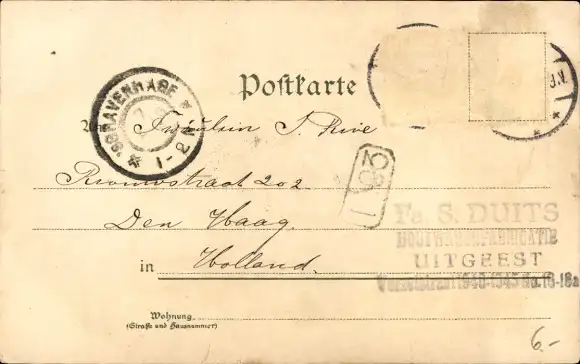 Postkarte
'S GRAVENHAGE
1-2 N
J.N.
Fräulein J. Rive
202
Den Haag
in Holland.
Fa. S. DUITS
UITGEEST
1940-1945
Wohnung
(Straße und Hausnummer)
6.-